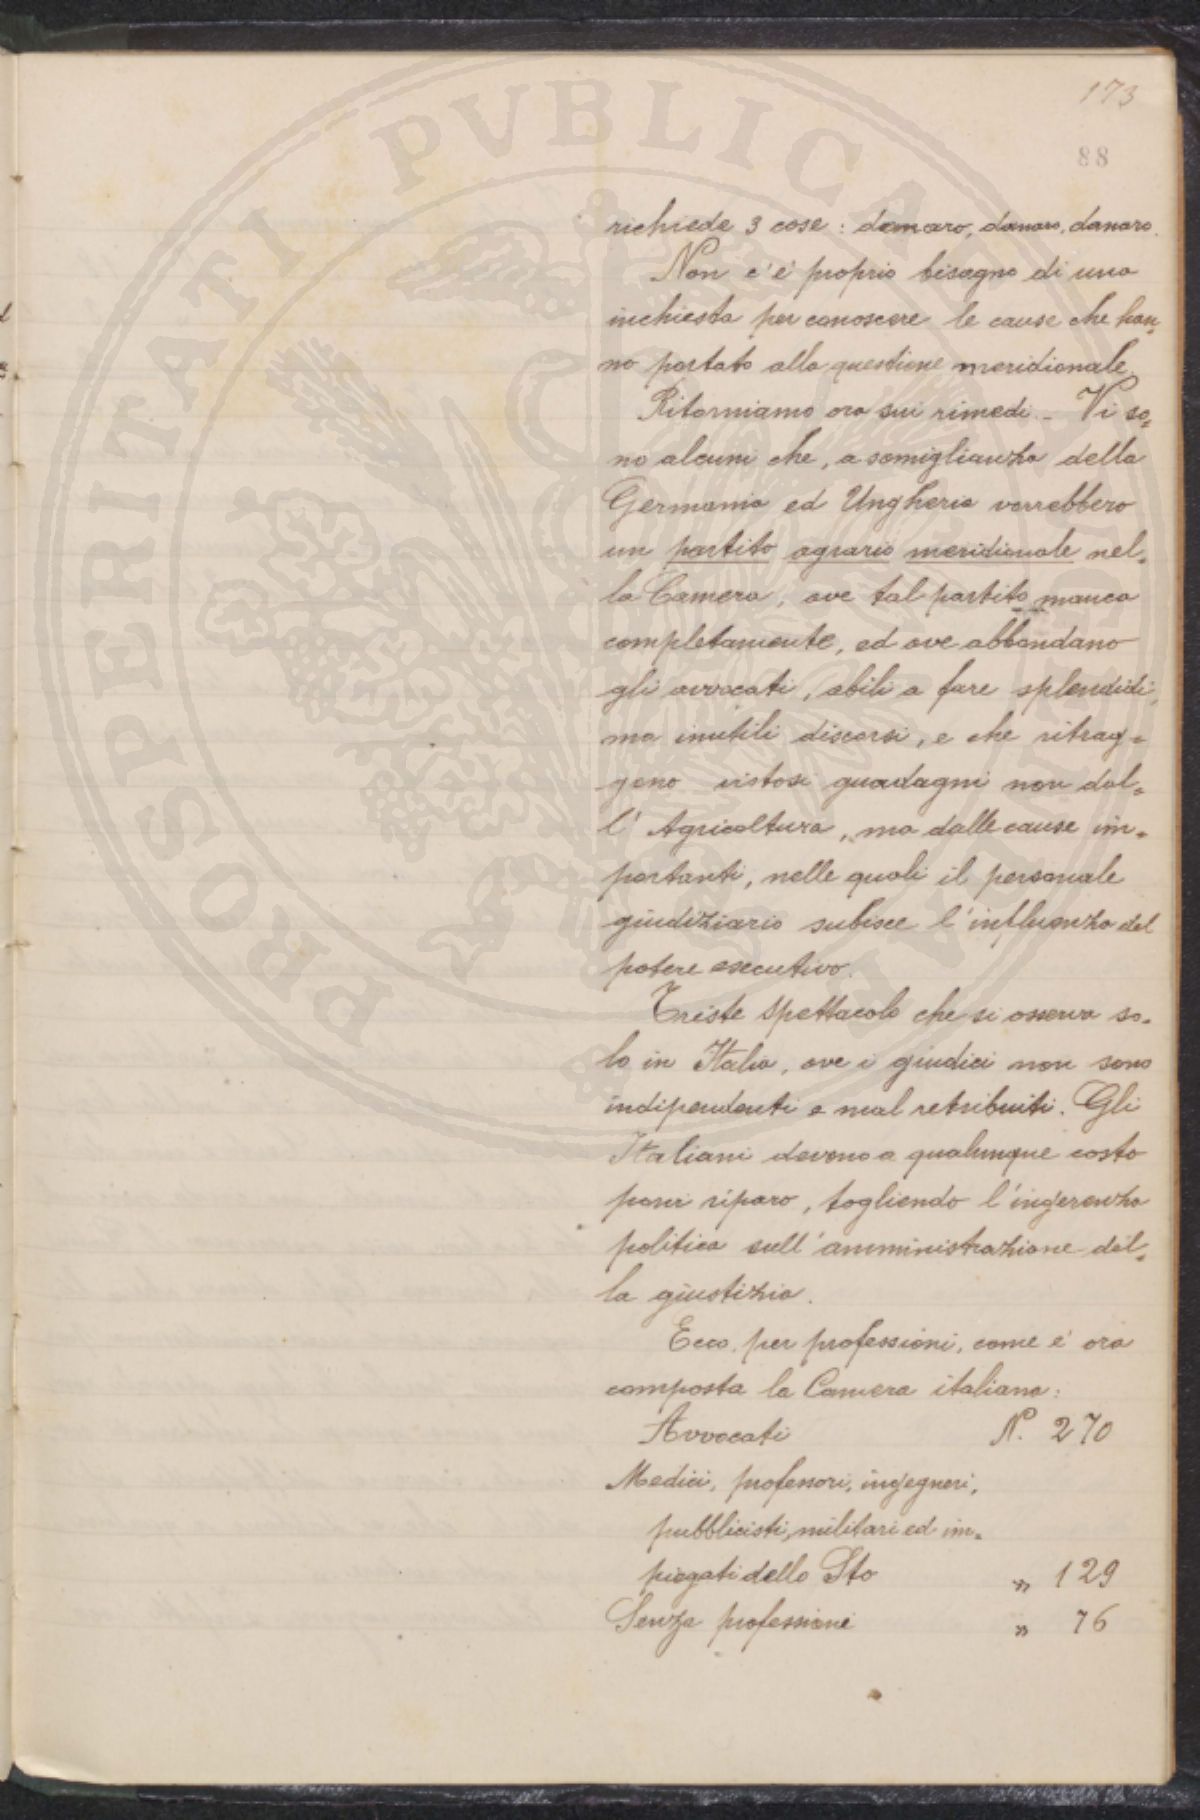 173
88
PROSPERITATI PVBLICAE
richiede 3 cose: danaro, danaro, danaro.
Non c'è proprio bisogno di una
inchiesta per conoscere le cause che han=
no portato alla questione meridionale.
Ritorniamo ora sui rimedi - Vi so=
no alcuni che, a somiglianza della
Germania ed Ungheria vorrebbero
un partito agrario meridionale nel=
la Camera, ove tal partito manca
completamente, ed ove abbondano
gli avvocati, abili a fare splendidi,
ma inutili discorsi, e che ritrag=
gono vistosi guadagni non dal=
l'Agricoltura, ma dalle cause im=
portanti, nelle quali il personale
giudiziario subisce l'influenza del
potere esecutivo.
Triste spettacolo che si osserva so=
lo in Italia, ove i giudici non sono
indipendenti e mal retribuiti. Gli
Italiani devono a qualunque costo
porvi riparo, togliendo l'ingerenza
politica sull'amministrazione del=
la giustizia.
Ecco, per professioni, come è ora
composta la Camera italiana:
Avvocati N. 270
Medici, professori, ingegneri,
pubblicisti, militari ed im=
piegati dello Sto " 129
Senza professione " 76